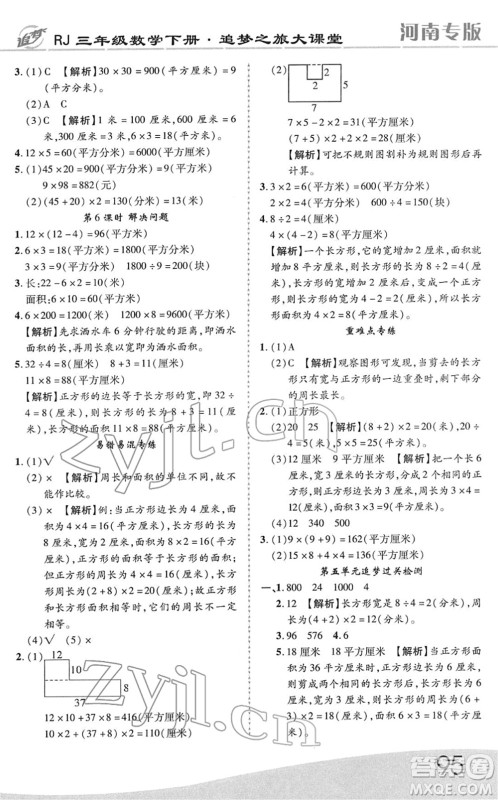 追梦
RJ 三年级数学下册·追梦之旅大课堂
河南专版
3.(1)C 【解析】30×30=900(平方厘米)=9(平
方分米)。
(2)A
(3)C 【解析】1 米=10 分米,60 厘米=6 分
米,300 厘米=30 分米,6×3=18(平方厘米)。
4.12×5=60(平方分米)=6000(平方厘米)
5.(1)45×20=900(平方分米)=9(平方米)
9×98=882(元)
(2)(45+20)×2=130(分米)
第 6 课时 解决问题
1.12×(12-4)=96(平方分米)
2.6×3=18(平方米)=1800(平方分米)
3×3=9(平方分米) 1800÷9=200(块)
3.长:22-6×2=10(米)
面积:6×10=60(平方米)
4.6×200=1200(平方米)
【解析】先求洒水车 6 分钟行驶的距离,即洒水
面积的长,再乘每分钟洒水的宽度即可。
5.32÷4=8(厘米) 8+3=11(厘米)
11×8=88(平方厘米)
【解析】正方形的边长等于长方形的宽,长方形
的宽=32÷4=8(厘米),长方形的长=8+3=
11(厘米),面积=11×8=88(平方厘米)。
易错易混专练
1.(1)√
(2)× 【解析】周长和面积的单位不同,故不
能作比较。
(3)× 【解析】例:当正方形的边长为 4 厘米
时,面积=4×4=16(平方厘米),周长=4×4=
16(厘米),当长方形的长为 6 厘米,宽为 2 厘
米时,面积=6×2=12(平方厘米),周长=(6+
2)×2=16(厘米),长方形的周长与正方形的
周长相等,但是长方形的面积小于正方形的
面积。
(4)√ (5)×
2.(1)
10
12
8
37
12×10+37×8=416(平方厘米)
(12+10+37+8)×2=134(厘米)
(2)
2
5
7
7×5-2×2=31(平方厘米)
(7+5)×2+2×2=28(厘米)
【解析】可把不规则图割补为规则图形后再
计算。
3.3×2=6(平方米)=600(平方分米)
2×2=4(平方分米) 600÷4=150(块)
4.8÷2=4(厘米)
【解析】一个长方形,它的宽增加 2 厘米,面积
就增加 8 平方厘米。根据“长方形的面积=长
×宽”可知,长方形的长=8÷2=4(厘米)。又
因为它的宽增加 2 厘米后变成了正方形,则它
的宽比长少 2 厘米,即 4-2=2(厘米),所以长
方形的面积=4×2=8(平方厘米)。
重难点专练
1.(1)A
(2)C 【解析】观察图形可发现,当长方形的
长与宽和正方形的一边重叠时,拼成的图形
周长最短。
2.(1)正方形
(2)20 25 【解析】(8+2)×2=20(米),20
÷4=5(米),5×5=25(平方米)。
(3)12 厘米 9 平方厘米 【解析】从一个长
5 厘米、宽 3 厘米的长方形中剪一个最大的正
方形,边长为 3 厘米,故正方形的周长=3×4=
12(厘米),面积=3×3=9(平方厘米)。
(4)12 340 500
3.(1)9×(9+6)=135(平方厘米)
(2)15×8÷2=60(平方厘米)
第五单元追梦过关检测
一、1.800 24 1000 4
2.12 【解析】长方形宽是 8÷2=4(厘米),面积
是 8×4=32(平方厘米),长是 32÷4=8(厘米),
8+4=12(厘米)。
3.96 576 4.6
5.18 厘米 18 平方厘米 【解析】长方形的
长=3×2=6(厘米),长方形的周长=(6+
3)×2=18(厘米),面积=6×3=18(平方厘
米)。
95
zyjl.cn
zyjl.cn
答案圈
MXQE.COM